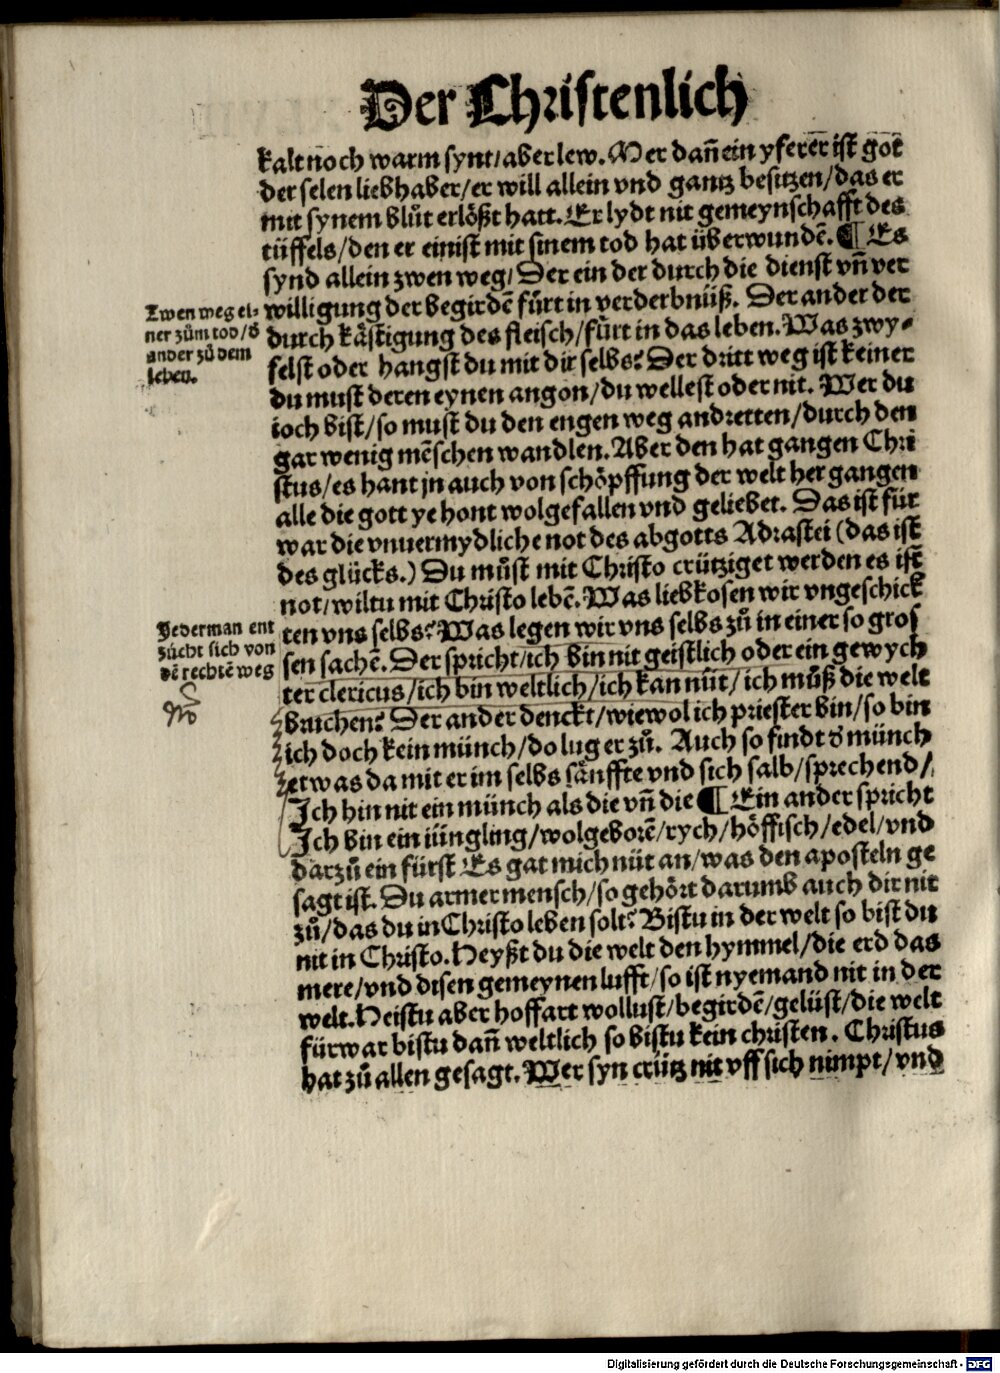 Der Christenlich
kalt noch warm synt/ aber lew. Mer dañ ein yferer ist got
der selen liebhaber/ er will allein vnd gantz besitzen/ das er
mit synem blůt erlößt hatt. Er lydt nit gemeynschafft des
tüffels/ den er einist mit sinem tod hat überwundẽ. ¶ Es
synd allein zwen weg/ Der ein der durch die dienst vñ ver
Zwen weg ei-
ner zům tod/ d᷑
ander zů dem
leben.
willigung der begirdẽ fůrt in verderbnüß. Der ander der
durch kästigung des fleisch/ fůrt in das leben. Was zwy-
felst oder hangst du mit dir selbs? Der dritt weg ist keiner
du must deren eynen angon/ du wellest oder nit. Wer du
ioch bist/ so must du den engen weg andretten/ durch den
gar wenig mẽschen wandlen. Aber den hat gangen Chri
stus/ es hant jn auch von schöpffung der welt her gangen
alle die gott ye hont wolgefallen vnd geliebet. Das ist für
war die vnuermydliche not des abgotts Adrastei (das ist
des glücks.) Du můst mit Christo crütziget werden es ist
not/ wiltu mit Christo lebẽ. Was liebkosen wir vngeschick
Yederman ent
zücht sich von
dẽ rechtẽ weg
ten vns selbs? Was legen wir vns selbs zů in einer so gros
sen sachẽ. Der spricht/ ich bin nit geistlich oder ein gewych
ter clericus/ ich bin weltlich/ ich kan nüt/ ich můß die welt
bruchen? Der ander denckt/ wiewol ich priester bin/ so bin
ich doch kein münch/ do lug er zů. Auch so findt d᷑ münch
etwas da mit er im selbs sänffte vnd sich salb/ sprechend/
Ich bin nit ein münch als die vñ die ¶ Ein ander spricht
Ich bin ein iüngling/ wolgeborẽ/ rych/ höffisch/ edel/ vnd
darzů ein fürst Es gat mich nüt an/ was den aposteln ge
sagt ist. Du armer mensch/ so gehört darumb auch dir nit
zů/ das du in Christo leben solt? Bistu in der welt so bist du
nit in Christo. Heyßt du die welt den hymmel/ die erd das
mere/ vnd disen gemeynen lufft/ so ist nyemand nit in der
welt. Heistu aber hoffart wollust/ begirdẽ/ gelüst/ die welt
fürwar bistu dañ weltlich so bistu kein christen. Christus
hat zů allen gesagt. Wer syn crütz nit vff sich nimpt/ vnd
Digitalisierung gefördert durch die Deutsche Forschungsgemeinschaft - DFG